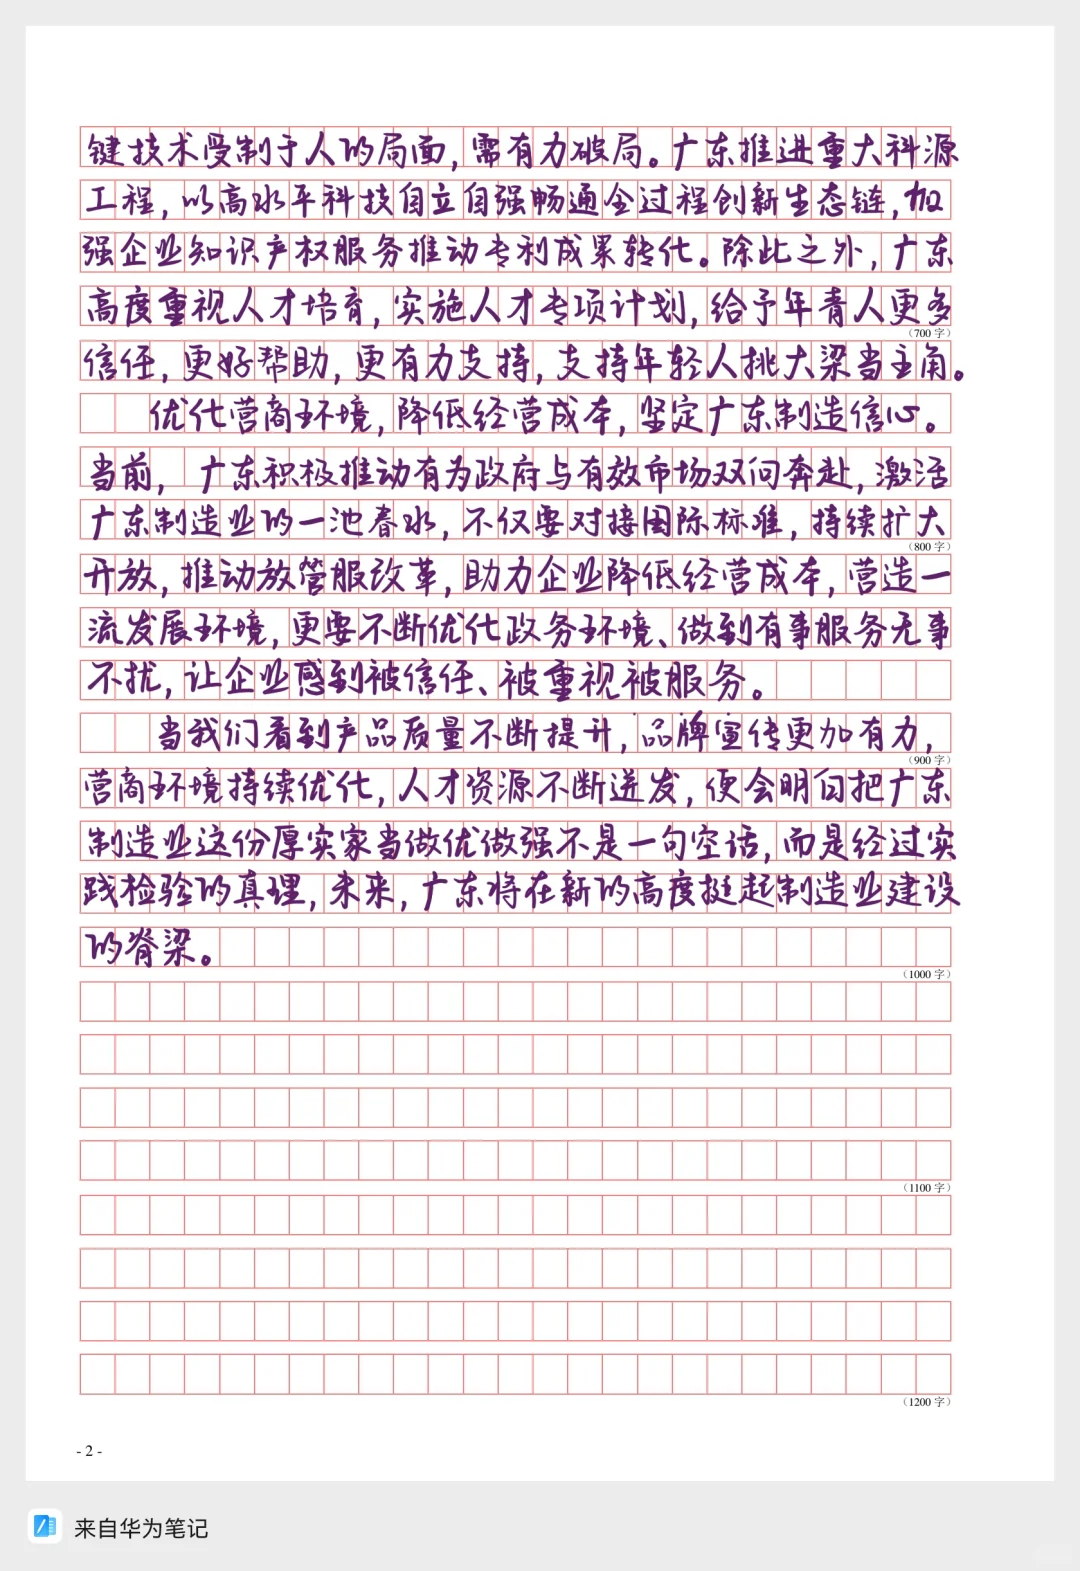 键技术受制于人的局面，需有力破局。广东推进重大科源
工程，以高水平科技自立自强畅通全过程创新生态链，加
强企业知识产权服务推动专利成果转化。除此之外，广东
高度重视人才培育，实施人才专项计划，给予年青人更多
（700 字）
信任，更好帮助，更有力支持，支持年轻人挑大梁当主角。
优化营商环境，降低经营成本，坚定广东制造信心。
当前，广东积极推动有为政府与有效市场双向奔赴，激活
广东制造业的一池春水，不仅要对接国际标准，持续扩大
（800 字）
开放，推动放管服改革，助力企业降低经营成本，营造一
流发展环境，更要不断优化政务环境、做到有事服务无事
不扰，让企业感到被信任、被重视被服务。
当我们看到产品质量不断提升，品牌宣传更加有力，
（900 字）
营商环境持续优化，人才资源不断迸发，便会明白把广东
制造业这份厚实家当做优做强不是一句空话，而是经过实
践检验的真理，未来，广东将在新的高度挺起制造业建设
的脊梁。
（1000 字）
（1100 字）
（1200 字）
- 2 -
来自华为笔记